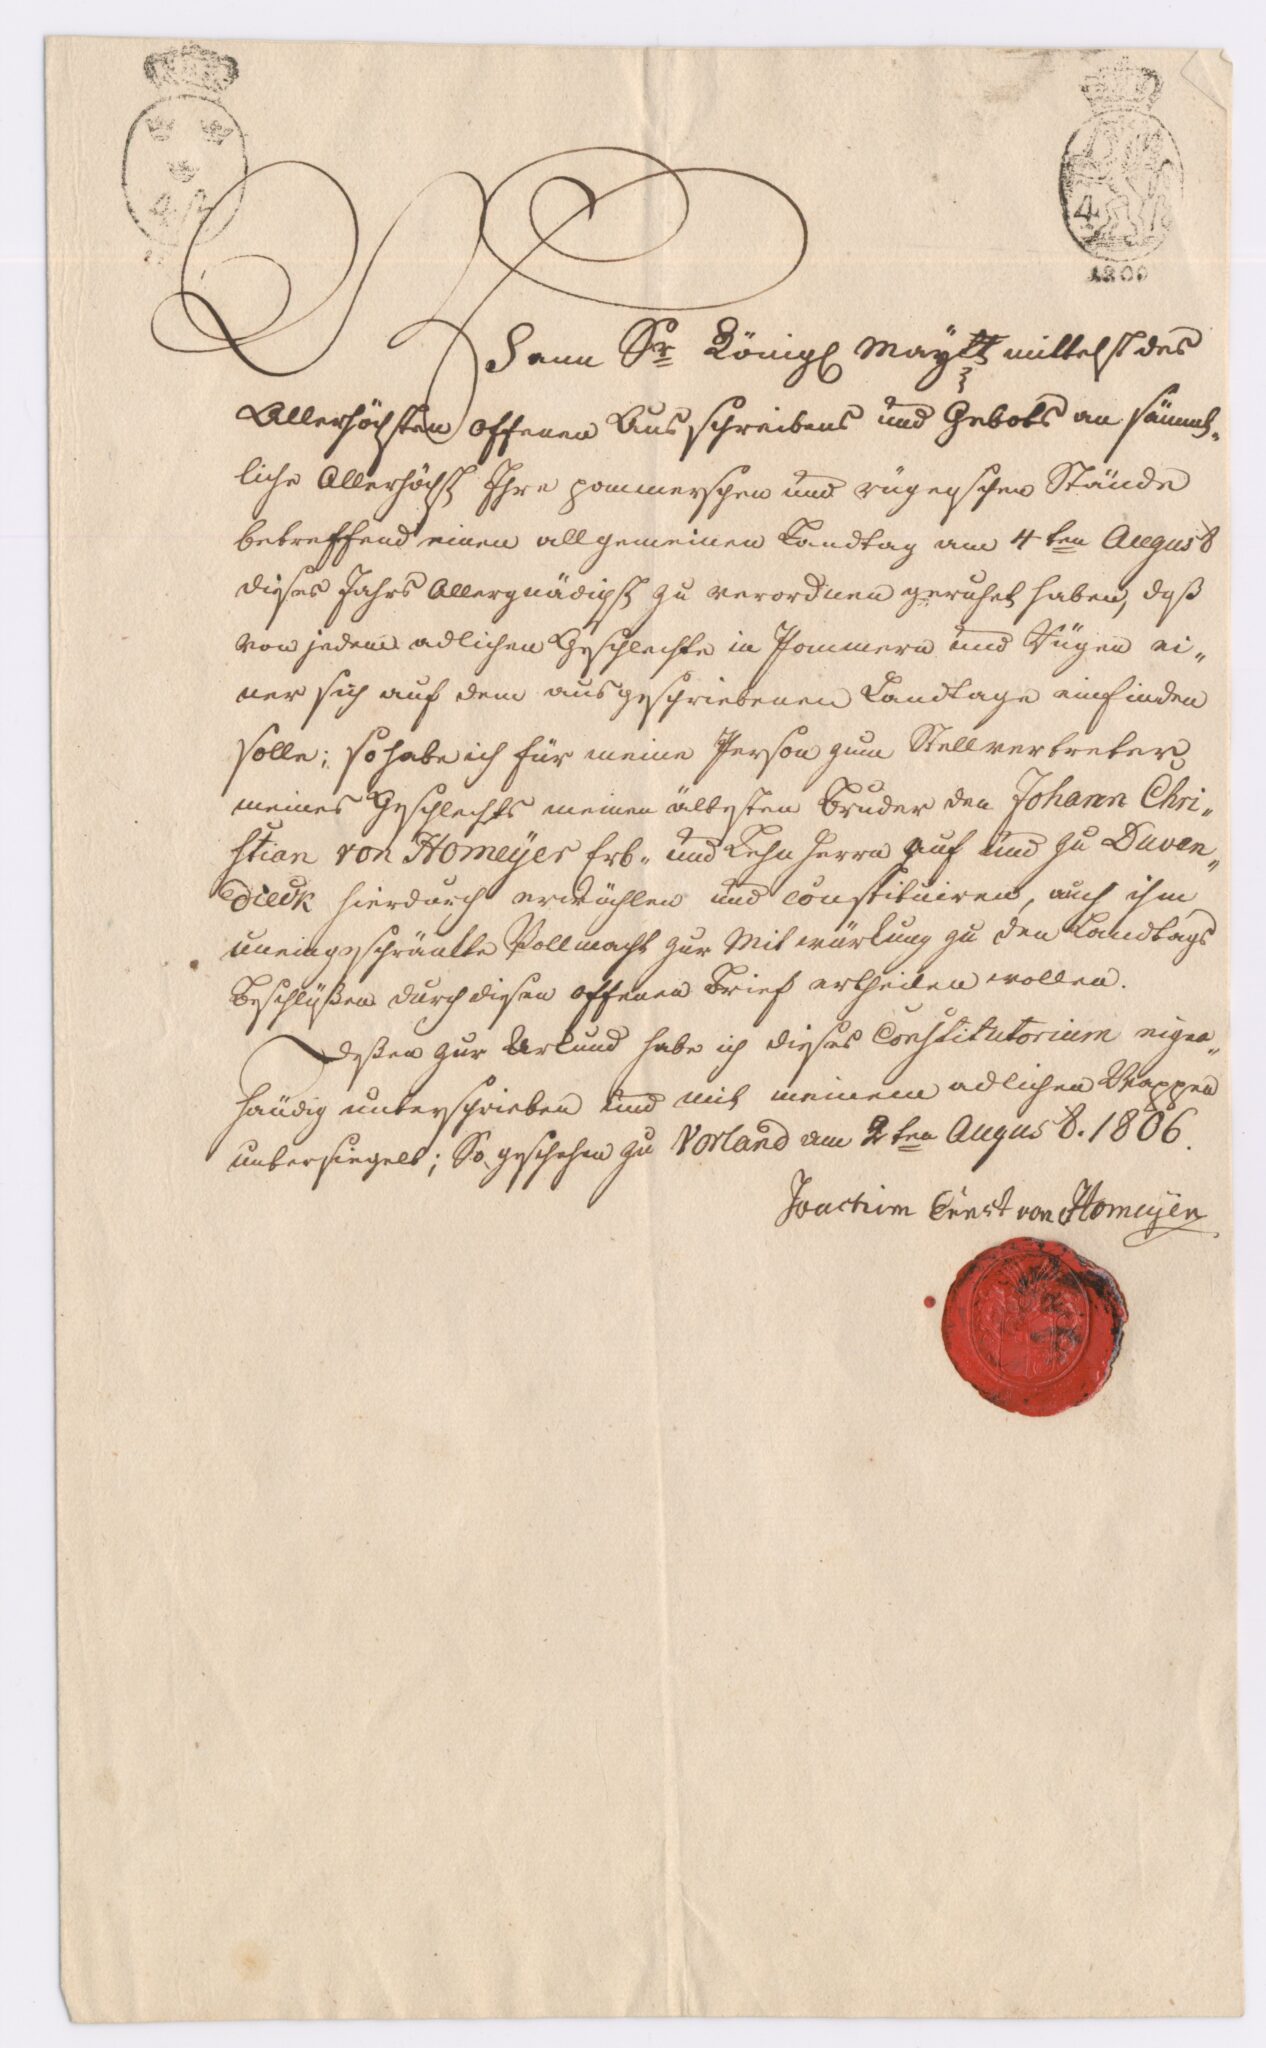 4 ß
4 ß
1800
Wenn Sr Königl Mayttt mittelst des
Allerhöchsten offenen Ausschreibens und Gebots an sämmt„
liche Allerhöchst Ihre pommerschen und rügenschen Stände
betreffend einen allgemeinen Landtag am 4ten August
dieses Jahrs Allergnädigst zu verordnen geruhet haben, daß
von jedem adlichen Geschlechte in Pommern und Rügen ei„
ner sich auf dem ausgeschriebenen Landtage einfinden
solle; so habe ich für meine Person zum Stellvertreter
meines Geschlechts meinen ältesten Bruder den Johann Chri„
stian von Homeyer Erb„ und Lehnherrn auf und zu Duven„
dieck hierdurch erwählen und constituiren, auch ihm
uneingeschränkte Vollmacht zur Mitwürkung zu den Landtags
Beschlüßen durch diesen offenen Brief ertheilen wollen.
Deßen zur Urkund habe ich dieses Constitutorium eigen„
händig unterschrieben und mit meinem adlichen Wappen
untersiegelt; So geschehen zu Vorland am 2ten August. 1806.
Joachim Ernst von Homeyer